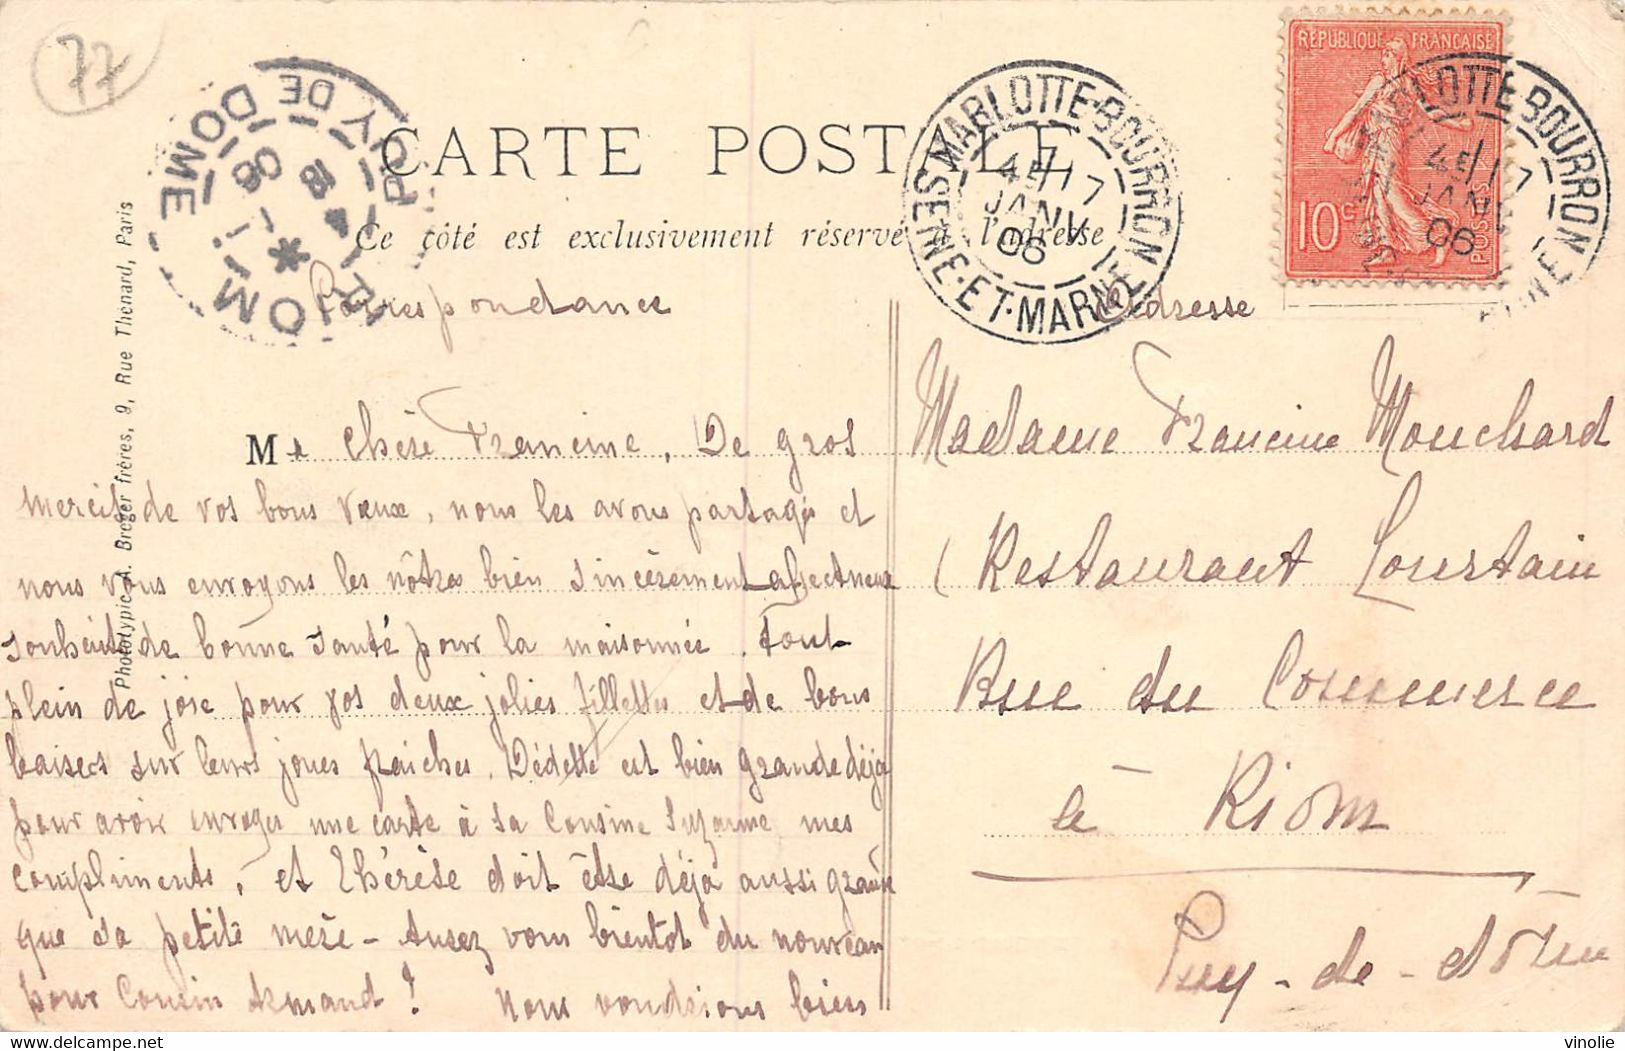 77
RIOM
PUY DE DOME
4
18 - 1
06
CARTE POSTALE
Ce côté est exclusivement réservé à l'adresse
MARLOTTE-BOURRON
SEINE-ET-MARNE
4E 17
JANV
06
REPUBLIQUE FRANÇAISE
10c
POSTES
MARLOTTE-BOURRON
4E 17
JANV
06
Phototypie A. Breger frères, 9, Rue Thenard, Paris
Correspondance
Adresse
Ma chère Francine, De gros
mercis de vos bons vœux, nous les avons partagés et
nous vous envoyons les nôtres bien sincèrement affectueux
souhaits de bonne santé pour la maisonnée. Tout
plein de joie pour vos deux jolies fillettes et de bons
baisers sur leurs joues fraiches. Dédette est bien grande déjà
pour avoir envoyer une carte à sa cousine Suzanne, mes
compliments, et Thérèse doit être déjà aussi grande
que sa petite mère - Aurez vous bientot du nouveau
pour Cousin Armand! Nous voudrions bien
Madame Francine Mouchard
Restaurant Courtain
Rue du Commerce
à Riom
Puy-de-dôme
https://www.delcampe.net
vinolie